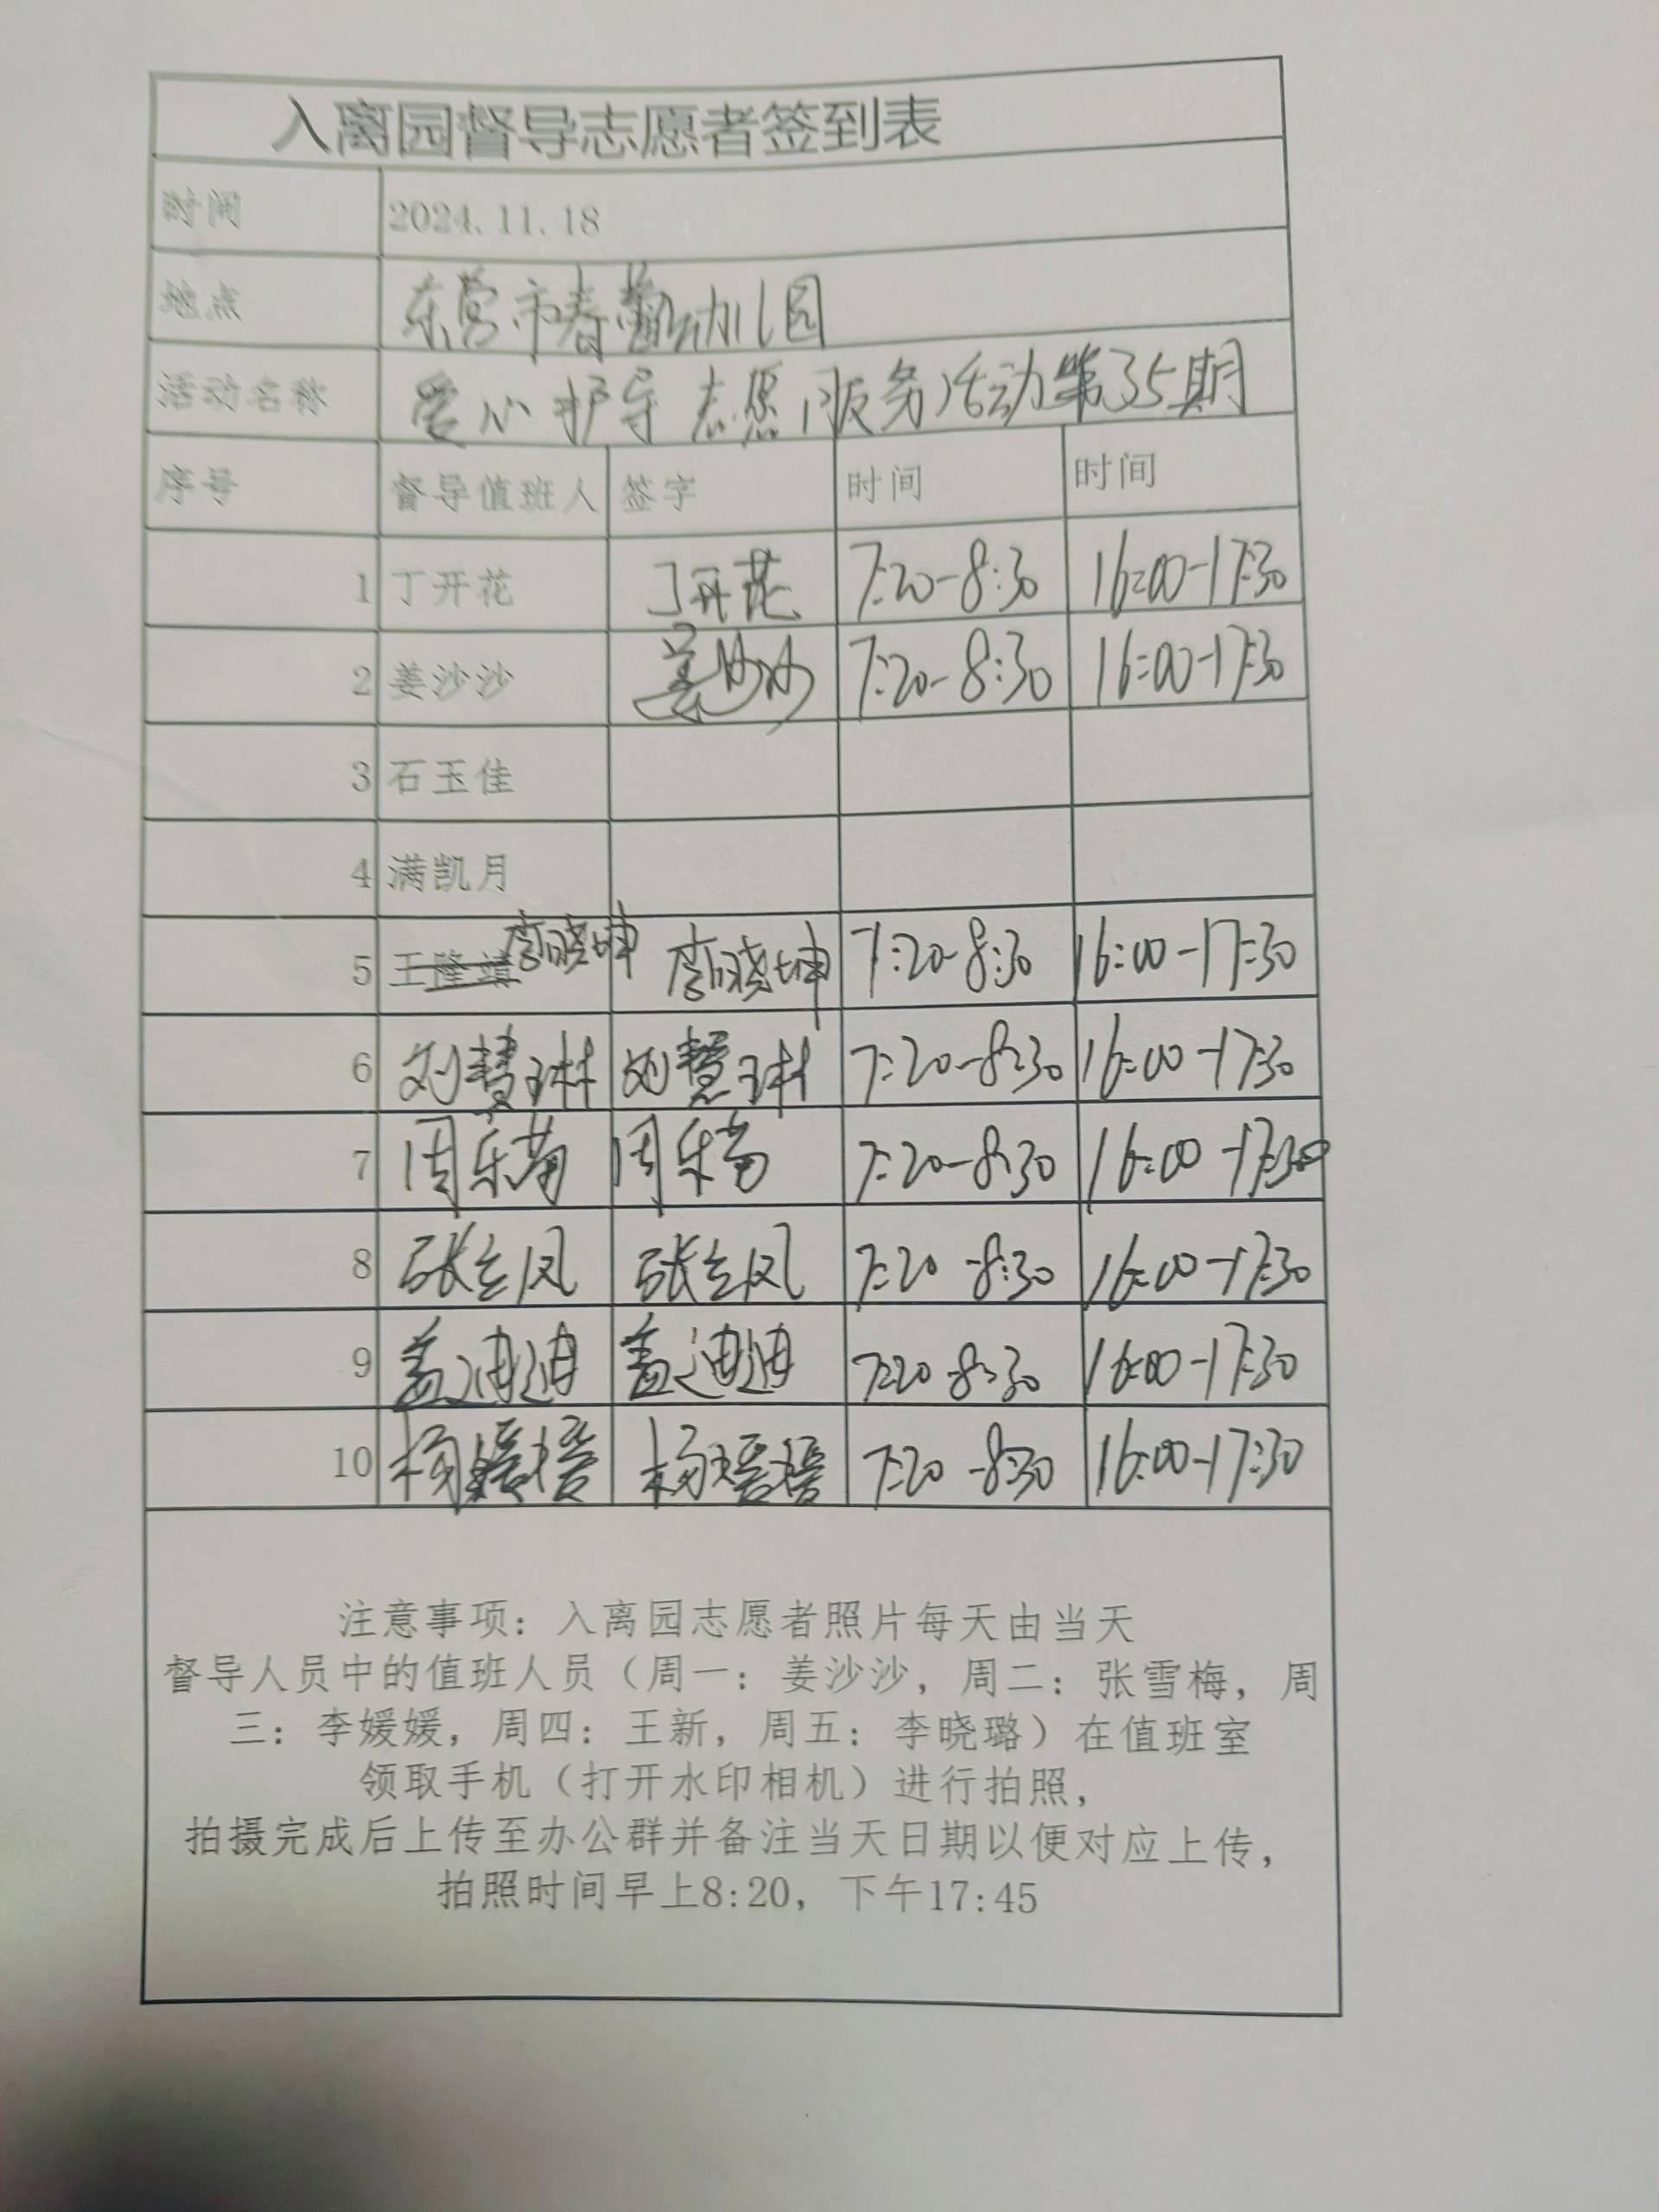 入离园督导志愿者签到表
时间 2024.11.18
地点 东营市春蕾幼儿园
活动名称 爱心护导志愿服务活动第35期
序号 督导值班人 签字 时间 时间
1 丁开花 丁开花 7:20-8:30 16:00-17:30
2 姜沙沙 姜沙沙 7:20-8:30 16:00-17:30
3 石玉佳
4 满凯月
5 李晓坤 李晓坤 7:20-8:30 16:00-17:30
6 刘慧琳 刘慧琳 7:20-8:30 16:00-17:30
7 周乐 周乐 7:20-8:30 16:00-17:30
8 张立凤 张立凤 7:20-8:30 16:00-17:30
9 盖迪迪 盖迪迪 7:20-8:30 16:00-17:30
10 杨 杨 7:20-8:30 16:00-17:30
注意事项：入离园志愿者照片每天由当天
督导人员中的值班人员（周一：姜沙沙，周二：张雪梅，周
三：李媛媛，周四：王新，周五：李晓璐）在值班室
领取手机（打开水印相机）进行拍照，
拍摄完成后上传至办公群并备注当天日期以便对应上传，
拍照时间早上8:20，下午17:45